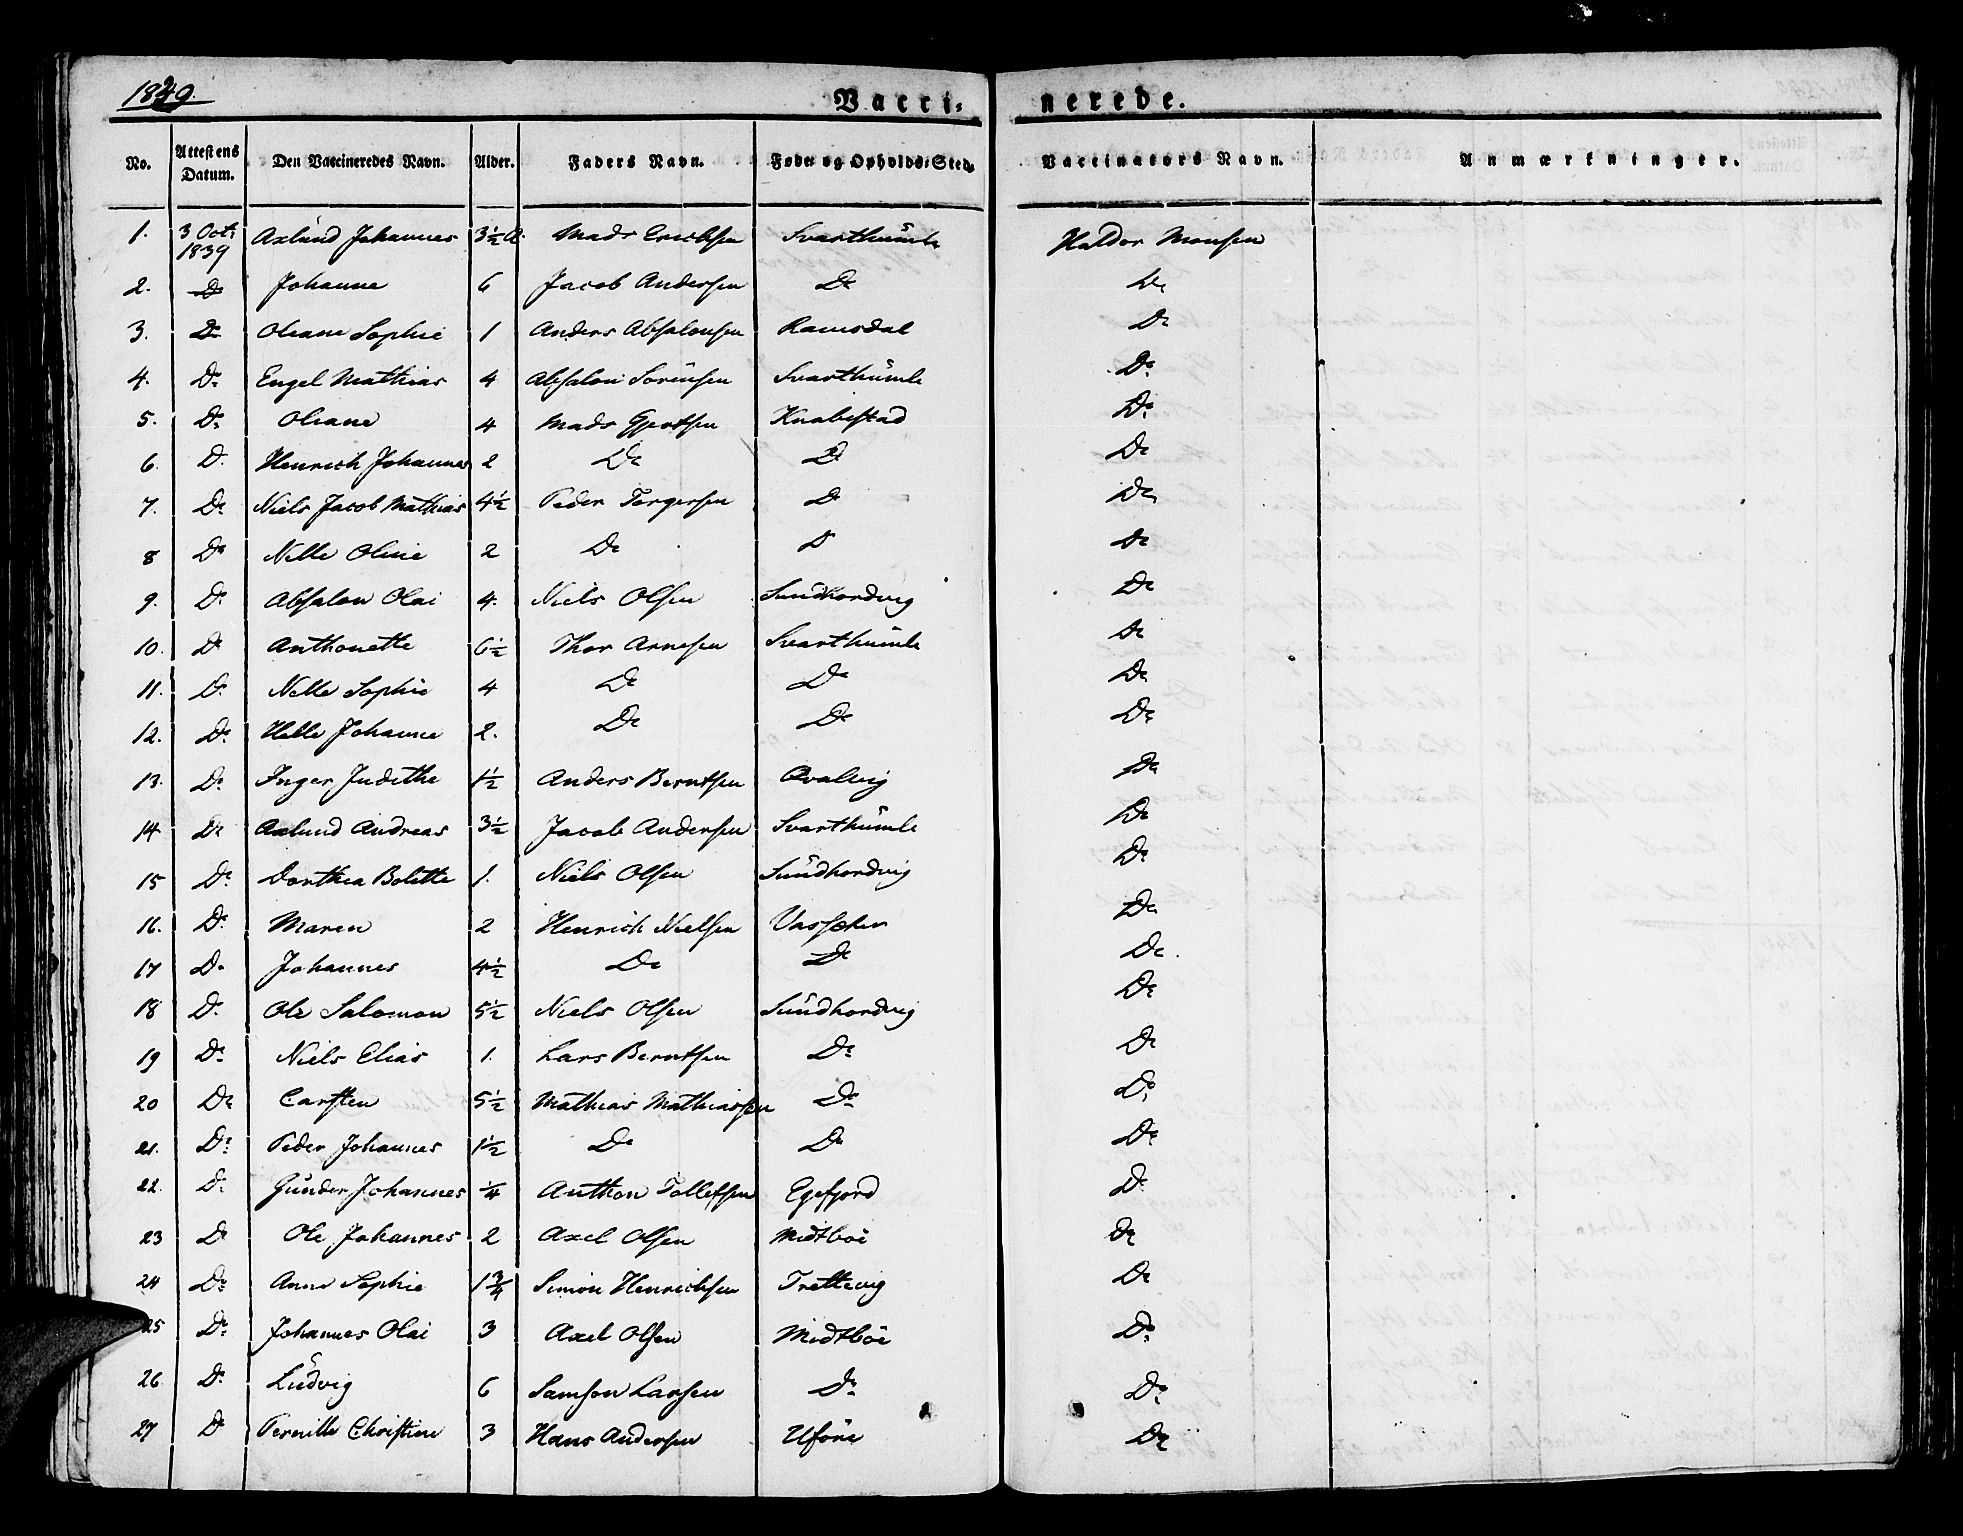 1839.
Vacci-nerede.
No. Attestens Datum. Den Vaccineredes Navn. Alder. Faders Navn. Føde- og Opholds-Sted. Vaccinateurs Navn. Anmærkninger.
1. 3 Oct: 1839 Axlund Johannes 3½ A. Mads Erichsen Svarthümle Haldor Monsen
2. Do Johanne 6 Jacob Andersen Do Do
3. Do Oleane Sophie 1 Anders Absalonsen Ramsdal Do
4. Do Engel Mathias 4 Absalon Sörensen Svarthümle Do
5. Do Oleane 4 Mads Gjertsen Knabestad Do
6. D. Henrich Johannes 2 Do D Do
7. Do Niels Jacob Mathias 4½ Peder Tergersen D Do
8 Do Nille Oline 2 Do D Do
9. Do Absalon Olai 4. Niels Olsen Sundhordvig Do
10. Do Anthonette 6½ Thor Arnesen Svarthümle Do
11. D. Nille Sophie 4 Do Do Do
12. Do Helle Johanne 2. Do Do Do
13. Do Inger Judithe 1½ Anders Berntsen Qvalvig Do
14 Do Axlund Andreas 3½ Jacob Andersen Svarthümle Do
15 Do Dorthea Bolette 1. Niels Olsen Sündhordvig Do
16. Do Maren 2 Henrich Nielsen Vassæter Do
17 Do Johannes 4½ Do Do Do
18 D. Ole Salomon 5½ Niels Olsen Sündhordvig Do
19 Do Niels Elias 1. Lars Berntsen Do Do
20 Do Carsten 5½ Mathias Mathiassen Do Do
21. Do Peder Johannes 1½ Do Do Do
22. D. Günder Johannes ¼ Anthon Tollefsen Egefjord D.
23 Do Ole Johannes 2 Axel Olsen Midtböe Do
24 Do Anne Sophie 1¾ Simon Henrichsen Trettevig Do
25 Do Johannes Olai 3 Axel Olsen Midtböe Do
26. Do Lüdvig 6 Samson Larsen Do Do
27 Do Pernille Christine 3 Hans Andersen Uföre Do